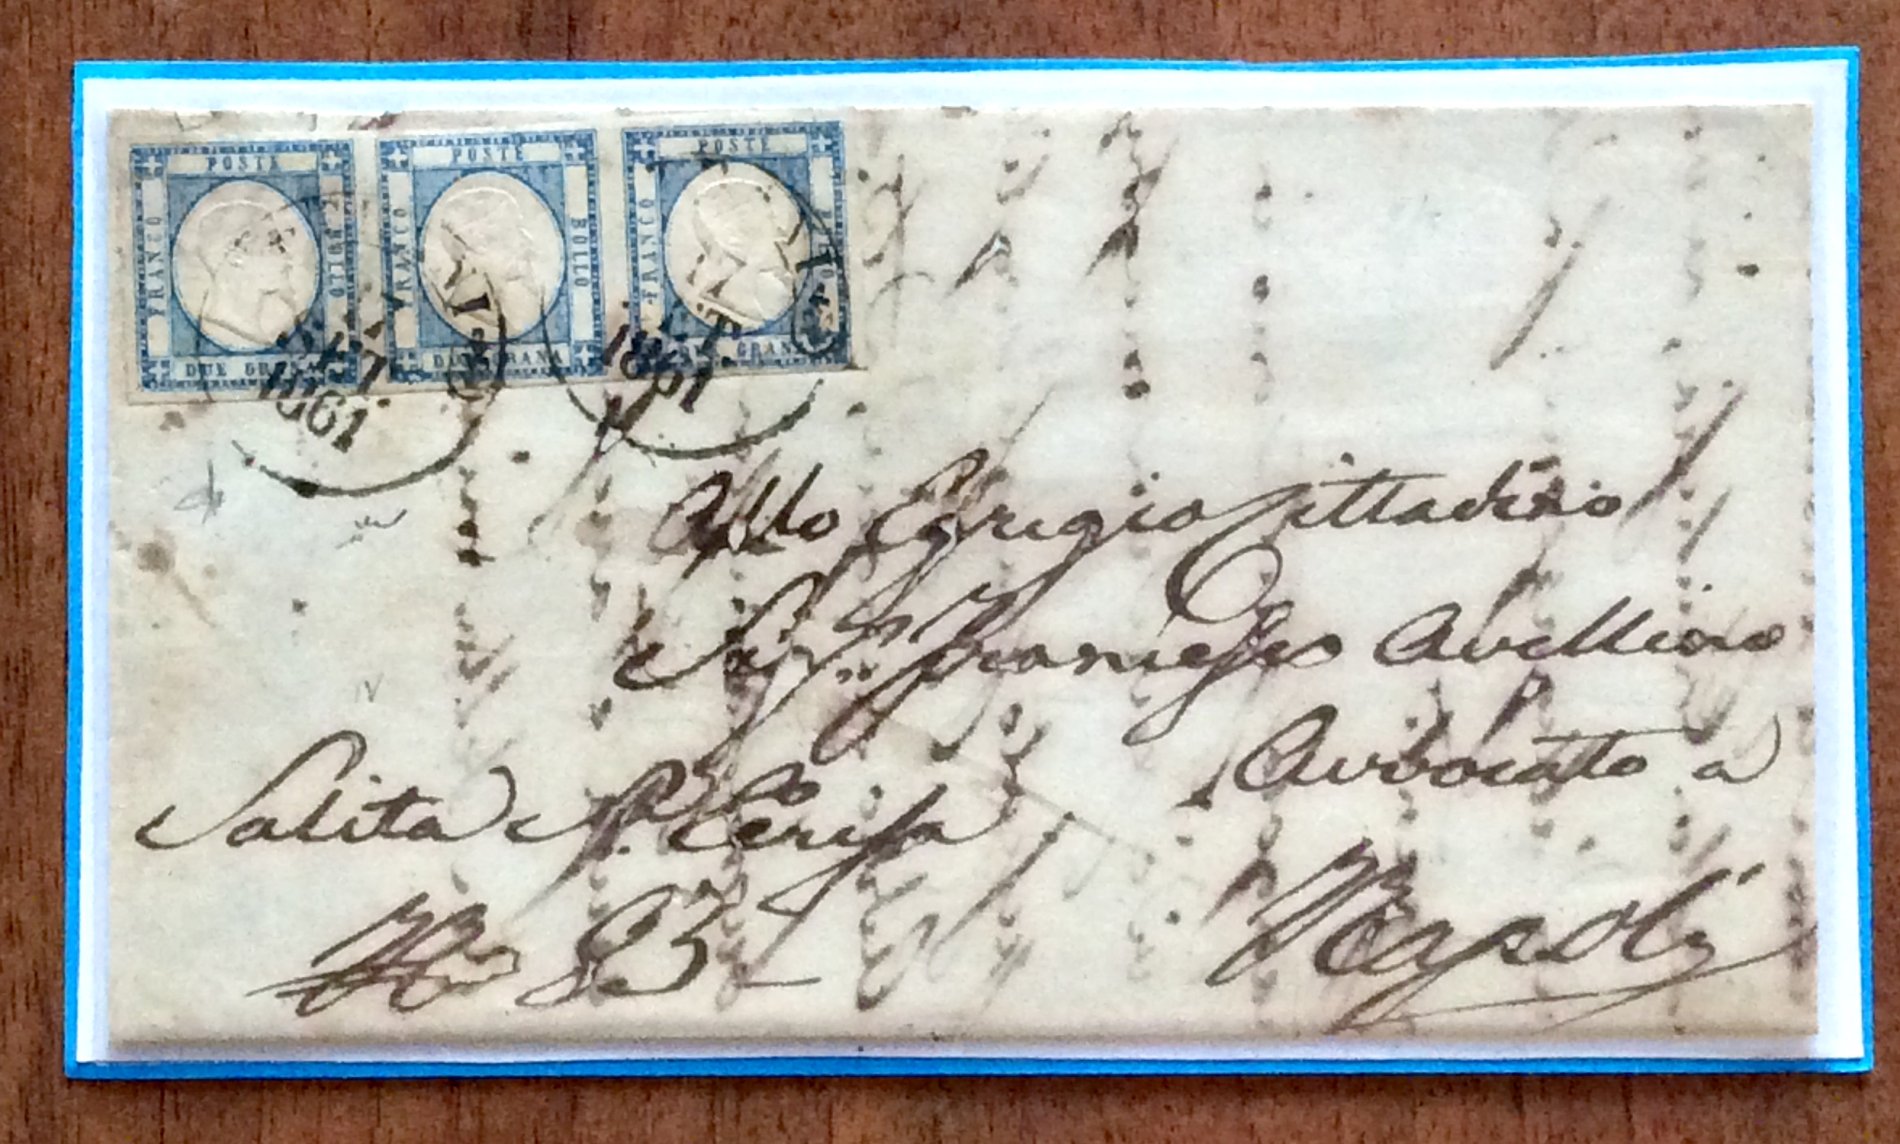 POSTE
FRANCO
BOLLO
DUE GRANA
POSTE
FRANCO
BOLLO
DUE GRANA
POSTE
FRANCO
BOLLO
DUE GRANA
SET
1861
SET
1861
Allo Egregio Cittadino
Sig.r Francesco Avellino
Avvocato a
Salita S.a Teresa
N.o 83
Napoli